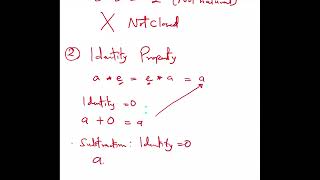 2 (Not natural)
X Not closed
② Identity Property
a * e = e * a = a
Identity = 0 :
a + 0 = a
· Subtraction: Identity = 0
a